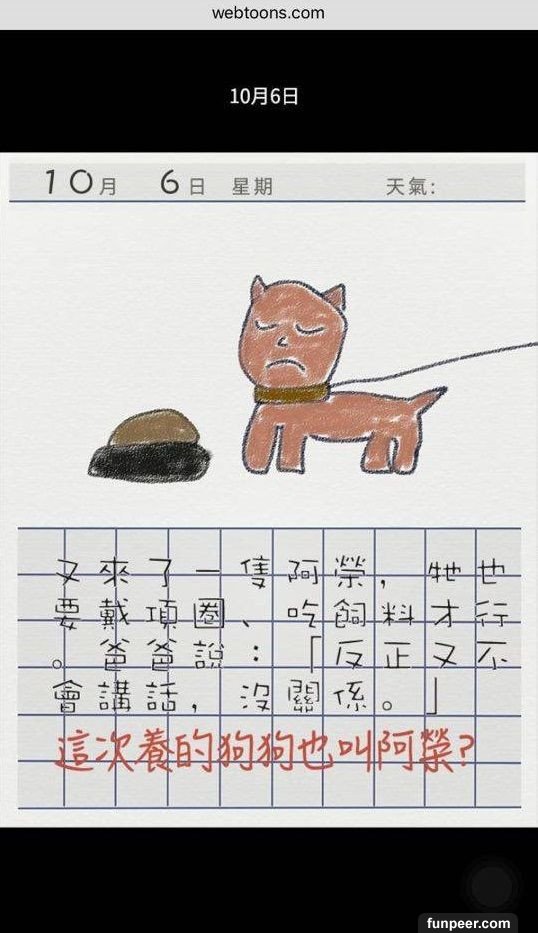 webtoons.com
10月6日
10月 6日 星期 天氣:
又來了一隻阿榮,牠也
要戴項圈、吃飼料才行
。爸爸說:「反正又不
會講話,沒關係。」
這次養的狗狗也叫阿榮?
funpeer.com